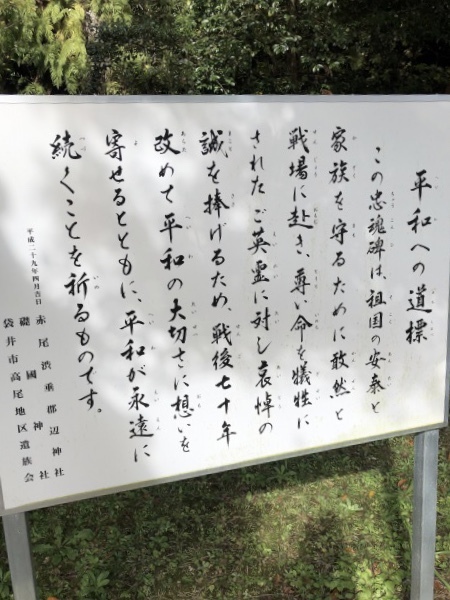 平和への道標
この忠魂碑は、祖国の安泰と
家族を守るために敢然と
戦場に赴き、尊い命を犠牲に
されたご英霊に対し哀悼の
誠を捧げるため、戦後七十年
改めて平和の大切さに想いを
寄せるとともに、平和が永遠に
続くことを祈るものです。
平成二十九年四月吉日
赤尾渋垂郡辺神社
礎國神社
袋井市高尾地区遺族会